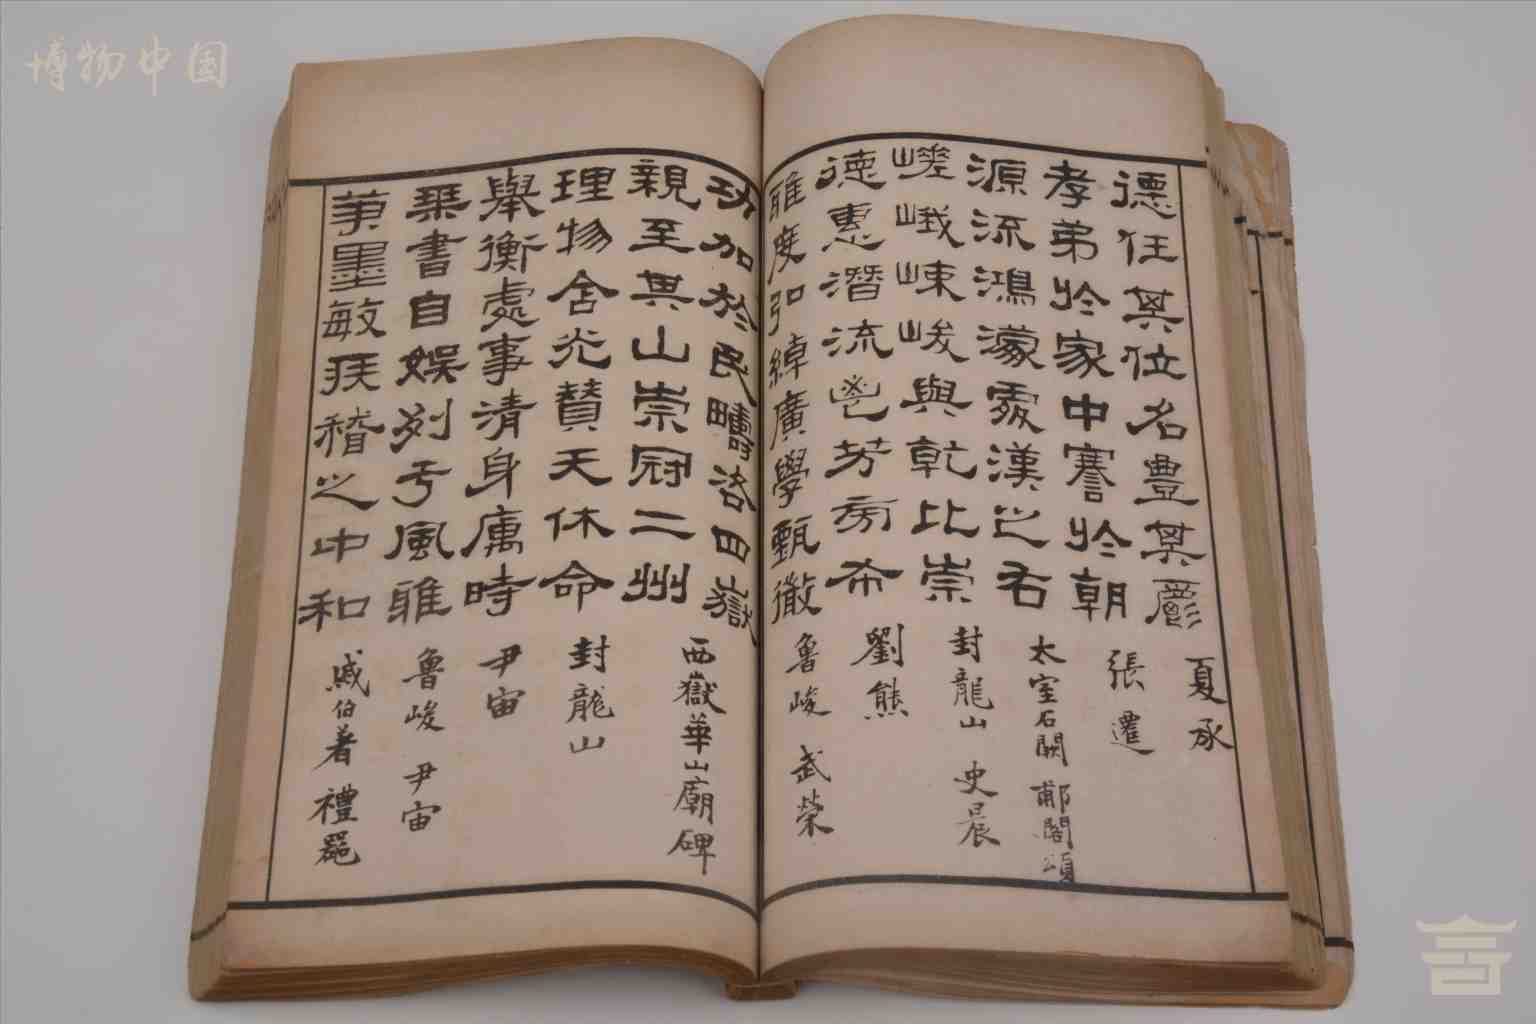 博物中国
德任其位名豊其爵 夏承
孝弟於家中謇於朝 張遷
源流鴻濛處漢之右 太室石闕 郙閣頌
嵯峨崠峻與乾比崇 封龍山 史晨
德惠潛流鬯芳旁布 劉熊
雅度弘綽廣學甄徹 魯峻 武榮
功加於民疇咨四嶽
親至其山崇冠二州 西嶽華山廟碑
理物含光贊天休命 封龍山
舉衡處事清身厲時 尹宙
琹書自娛列于風雅 魯峻 尹宙
茟墨敏疾稽之中和 戚伯著 禮器